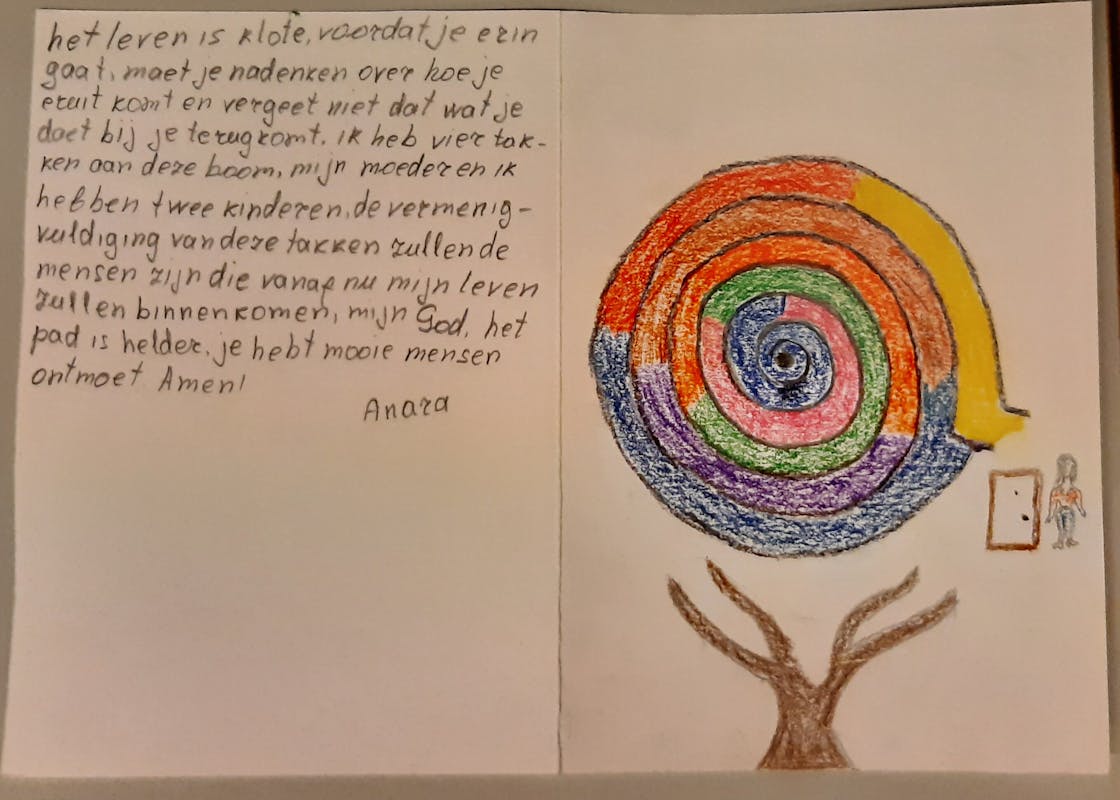 het leven is klote, voordat je erin
gaat, moet je nadenken over hoe je
eruit komt en vergeet niet dat wat je
doet bij je terugkomt. ik heb vier tak-
ken aan deze boom, mijn moeder en ik
hebben twee kinderen, de vermenig-
vuldiging van deze takken zullen de
mensen zijn die vanaf nu mijn leven
zullen binnenkomen, mijn God, het
pad is helder, je hebt mooie mensen
ontmoet Amen!
Anara